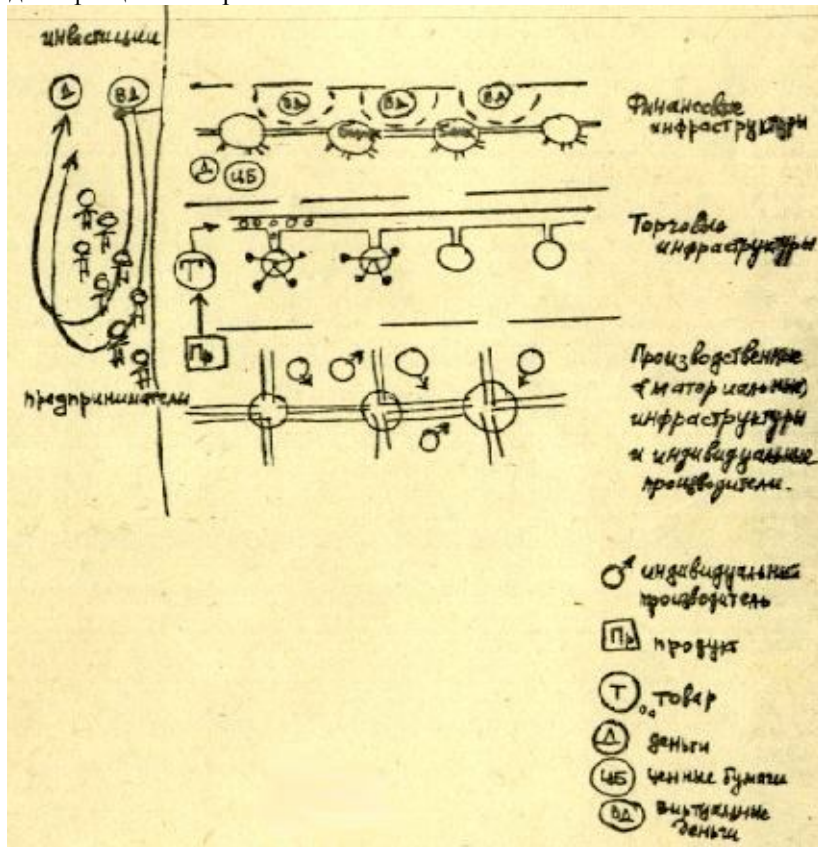 инвестиции
Д
ВД
ВД
ВД
ВД
Банк
Д
ЦБ
Финансовые
инфраструктуры
Т
Торговые
инфраструктуры
Пр
предприниматели
Производственные
(материальные)
инфраструктуры
и индивидуальные
производители.
индивидуальный
производитель
Пр продукт
Т товар
Д деньги
ЦБ ценные бумаги
ВД виртуальные
деньги